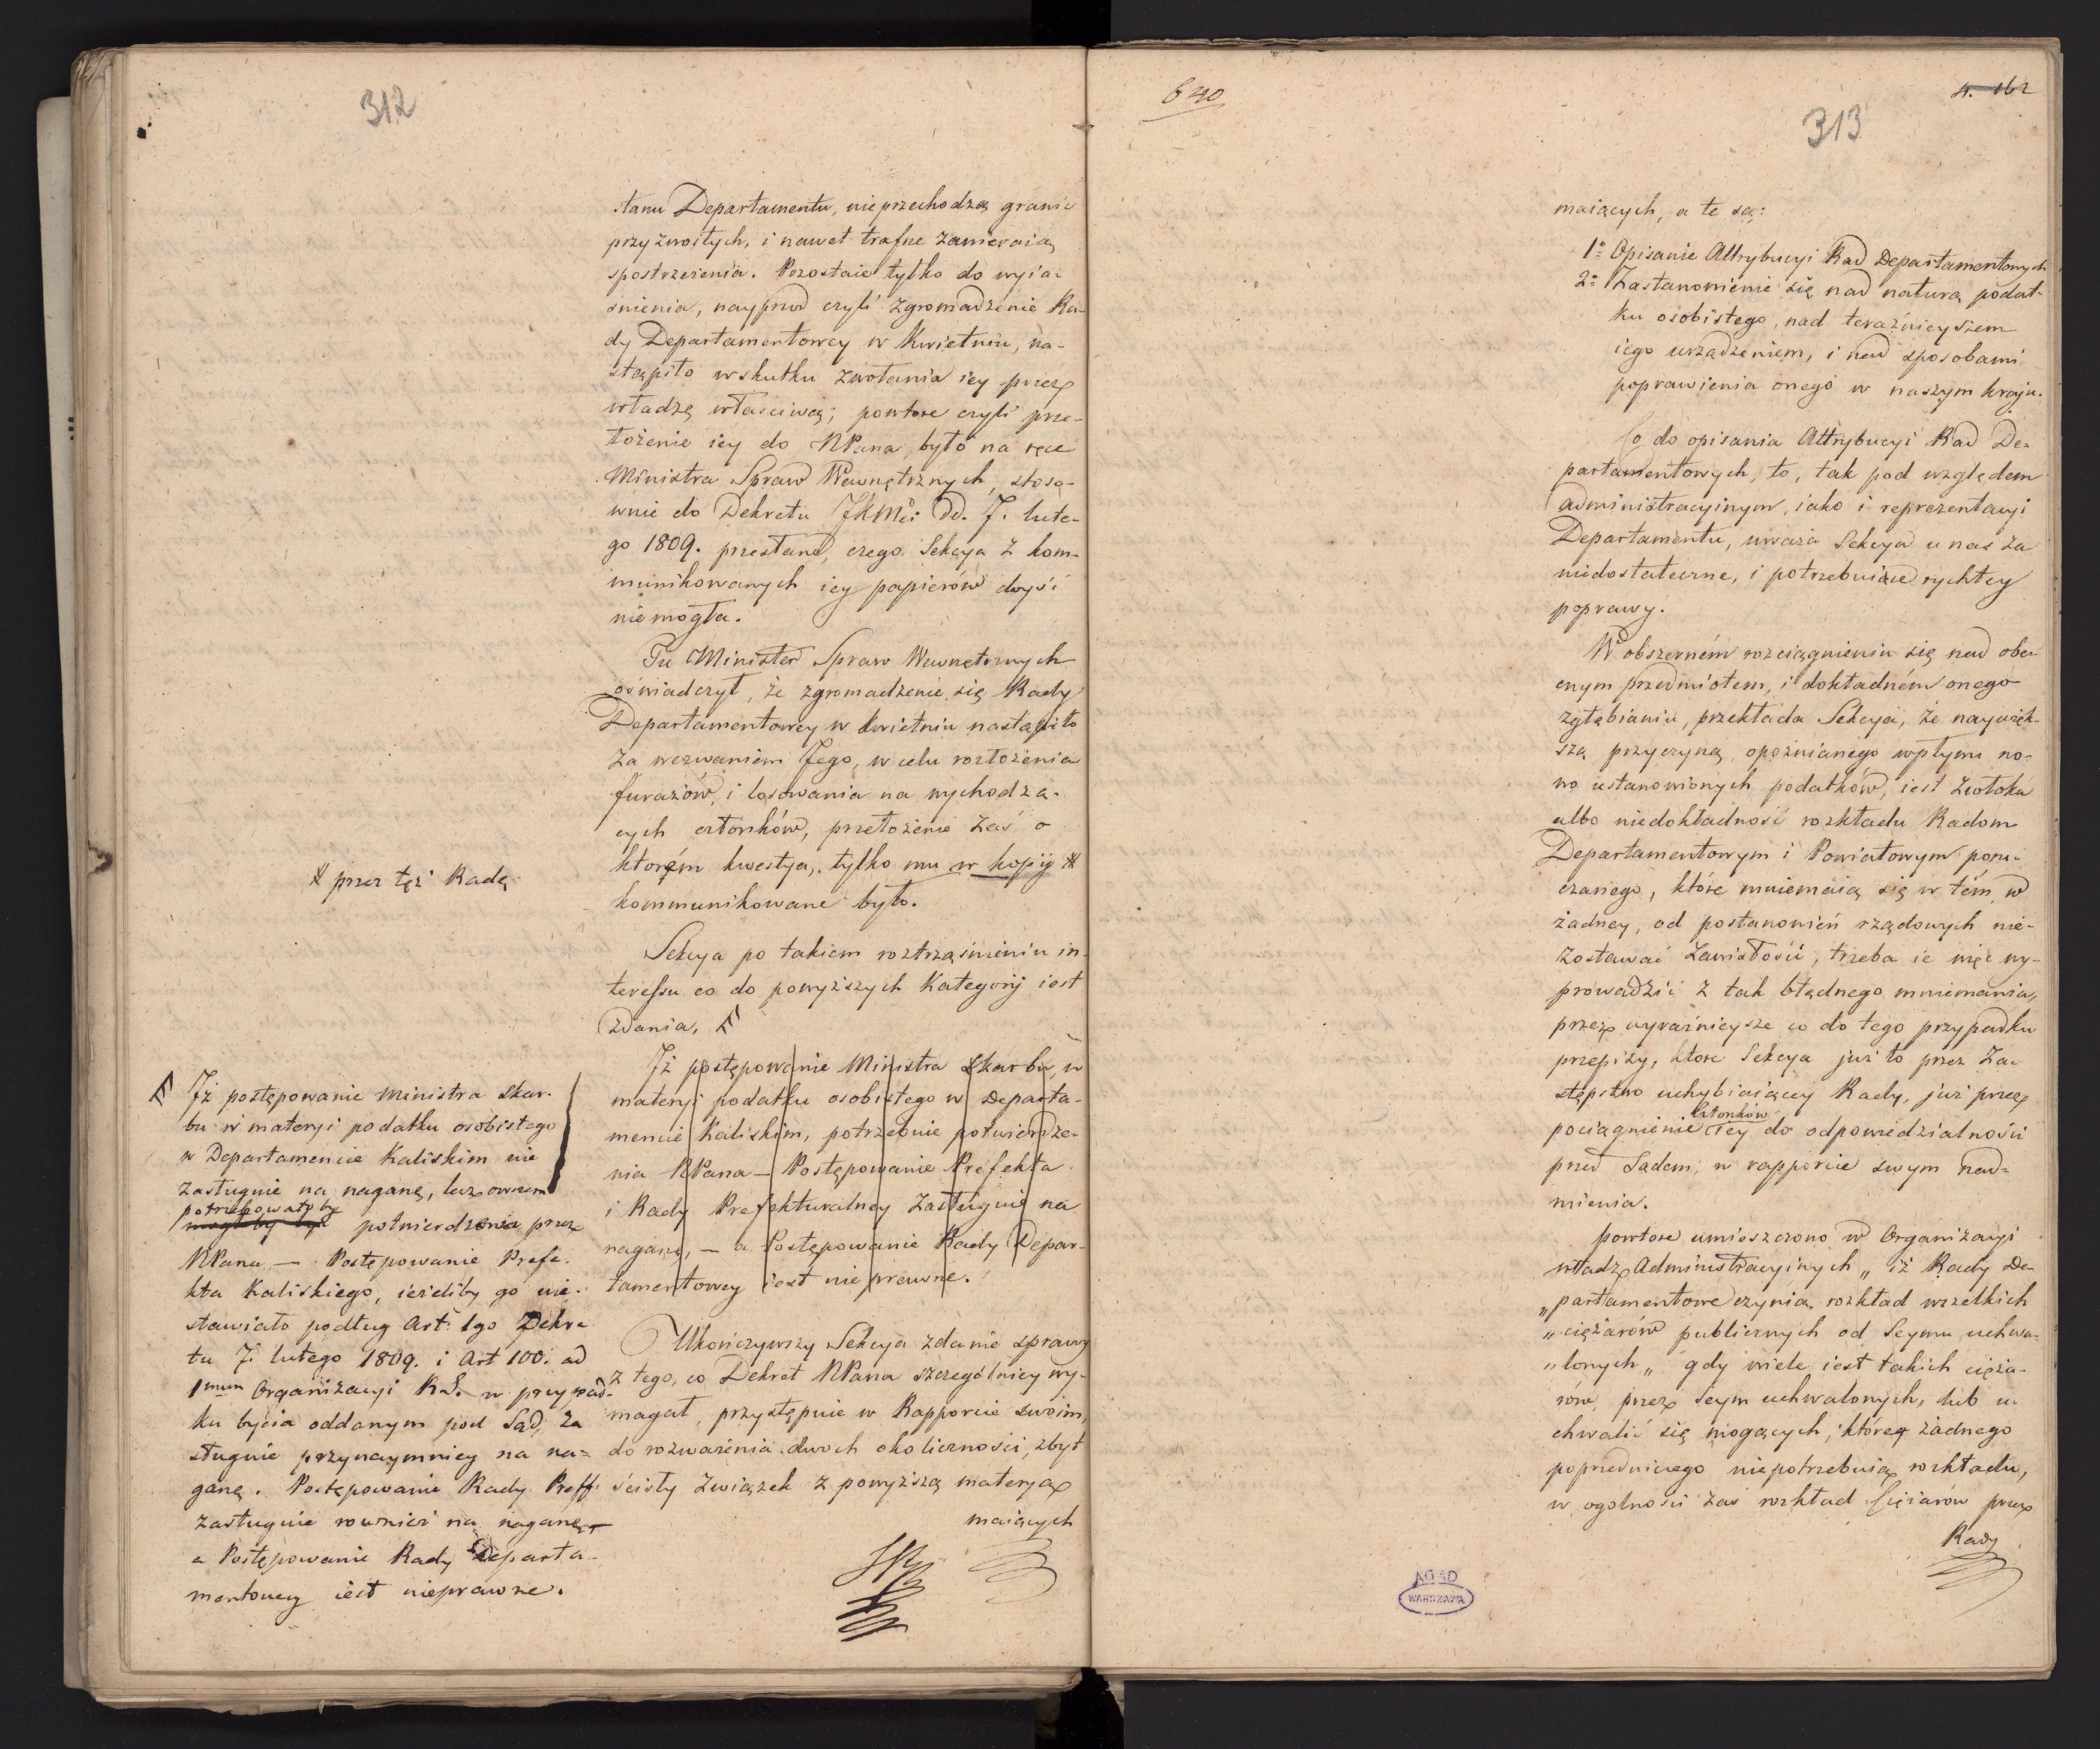 312
stanu Departamentu, nieprzechodzą granic
przyzwoitych, i nawet trafne zawieraią
spostrzeżenia. Pozostaie tylko do wyia-
śnienia, nayprzod czyli zgromadzenie Ra-
dy Departamentowey w Kwietniu, na-
stąpiło wskutku zwołania iey przez
władzę właściwą; powtore czyli prze-
łożenie iey do NPana, było na ręce
Ministra Spraw Wewnętrznych, stoso-
wnie do Dekretu JKMci dd. 7. lute-
go 1809. przesłane, czego Sekcya z kom-
munikowanych iey papierów doyść
niemogła.
Tu Minister Spraw Wewnętrznych
oświadczył, że zgromadzenie się Rady
Departamentowey w Kwietniu nastąpiło
za wezwaniem Jego, w celu rozłożenia
furażów, i losowania na wychodzą-
cych członków, przełożenie zaś o
ktorém kwestya, tylko mu w kopij #
kommunikowane było.
# przez tęż Radę
Sekcya po takiem roztrząśnieniu in-
teressu co do powyższych Kategoryj iest
zdania,
Jż postępowanie Ministra Skarbu, w
materyi podatku osobistego w Departa-
mencie Kaliskim, potrzebuie potwierdze-
nia NPana — Postępowanie Prefekta
i Rady Prefekturalney zasługuie na
naganę, — a Postępowanie Rady Depar-
tamentowey iest nieprawne.
Jż postępowanie Ministra Skar-
bu w materyi podatku osobistego
w Departamencie Kaliskim nie
zasługuie na naganę, lecz owszem
potrzebowałoby
mogłoby być potwierdzenia przez
NPana — Postępowanie Prefe-
kta Kaliskiego, ieżeliby go nie-
stawiało podług Art: 1go Dekre-
tu 7. lutego 1809. i Art 100. ad
1mum Organizacyi R.S. w przypad-
ku bycia oddanym pod Sąd, za
sługuie przynaymniey na na-
ganę. Postępowanie Rady Preff:
zasługuie rownież na naganę —
a Postępowanie Rady Departa-
mentowey iest nieprawne.
Ukończywszy Sekcya zdanie sprawy
z tego, co Dekret NPana szczególniey wy-
magał, przystępuie w Rapporcie swoim,
do rozważenia dwoch okoliczności, zbyt
ścisły związek z powyższą materyą
maiących
640
4. 162
313
maiących, a te są:
1o Opisanie Attrybucyi Rad Departamentowych
2o Zastanowienie się nad naturą podat-
ku osobistego, nad teraźnieyszem
iego urządzeniem, i nad sposobami
poprawienia onego w naszym kraju.
Co do opisania Attrybucyi Rad De-
partamentowych, to, tak pod względem
administracyinym, iako i reprezentacyi
Departamentu, uważa Sekcya u nas za
niedostateczne, i potrzebuiące rychłey
poprawy.
W obszerném rozciągnieniu się nad obe-
cnym przedmiotem, i dokładném onego
zgłębianiu, przekłada Sekcya, że naywięk-
szą przyczyną opoźnianego wpływu no-
wo ustanowionych podatków, iest zwłoka
albo niedokładność rozkładu Radom
Departamentowym i Powiatowym poru-
czanego, które mniemaią się w tém, w
żadney, od postanowień rządowych nie-
zostawać zawisłości, trzeba ie więc wy-
prowadzić z tak błędnego mniemania,
przez wyraźnieysze co do tego przypadku
przepisy, ktore Sekcya już to przez za-
stępstwo uchybiaiącey Rady, już przez
członków
pociągnienie tey do odpowiedzialności
przed Sądem, w rapporcie swym nad-
mienia.
powtore umieszczono w Organizacyi
władz Administracyinych „ iż Rady De-
„partamentowe czynią rozkład wszelkich
„ciężarów publicznych od Seymu uchwa-
„lonych „ gdy wiele iest takich cięża-
rów, przez Seym uchwalonych, lub u-
chwalić się mogących, które żadnego
poprzedniczego niepotrzebuią rozkładu,
w ogolności zaś rozkład Ciężarów przez
Rady
AGAD
WARSZAWA